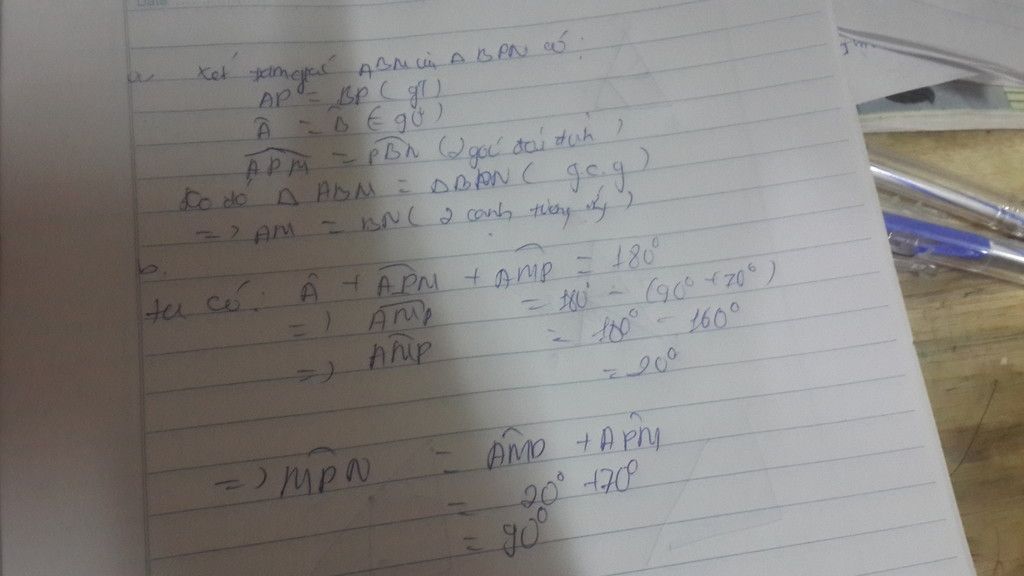 a, Xét tam giác ABM và Δ BPN có:
AP = BP (gt)
Â = B̂ (= 90°)
APM = PBN (2 góc đối đỉnh)
Do đó Δ ABM = ΔBPN (g.c.g)
=> AM = BN (2 cạnh tương ứng)
b.
ta có: Â + APM + AMP = 180°
=> AMP = 180° - (90° + 70°)
=> AMP = 180° - 160°
= 20°
=> MPN = AMP + APM
= 20° + 70°
= 90°